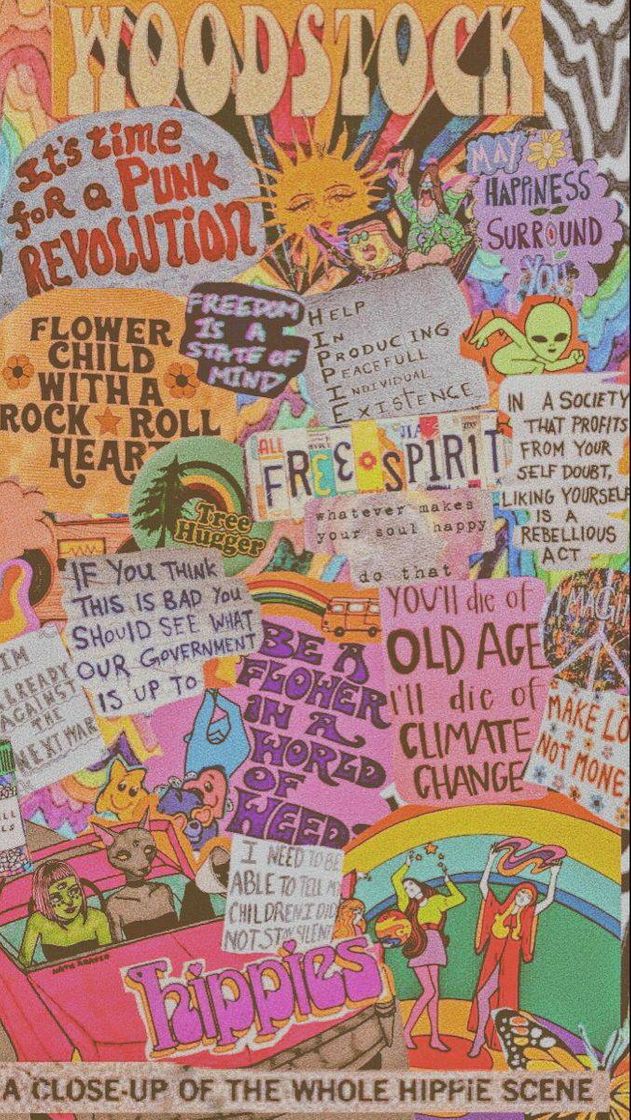 WOODSTOCK
It's time
for a PUNK
REVOLUTION
MAY
HAPPINESS
SURROUND
YOU
FREEDOM
IS A
STATE OF
MIND
HELP
IN
PRODUCING
PEACEFULL
INDIVIDUAL
EXISTENCE
FLOWER
CHILD
WITH A
ROCK ROLL
HEART
IN A SOCIETY
THAT PROFITS
FROM YOUR
SELF DOUBT,
LIKING YOURSELF
IS A
REBELLIOUS
ACT
FREE SPIRIT
Tree
Hugger
whatever makes
your soul happy
do that
IF YOU THINK
THIS IS BAD YOU
SHOULD SEE WHAT
OUR GOVERNMENT
IS UP TO
YOU'll die of
OLD AGE
i'll die of
CLIMATE
CHANGE
I'M
ALREADY
AGAINST
THE
NEXT WAR
BE A
FLOWER
IN A
WORLD
OF
WEEDS
MAKE LO
NOT MONE
I NEED TO BE
ABLE TO TELL M
CHILDREN I DID
NOT STAY SILENT
hippies
A CLOSE-UP OF THE WHOLE HIPPIE SCENE